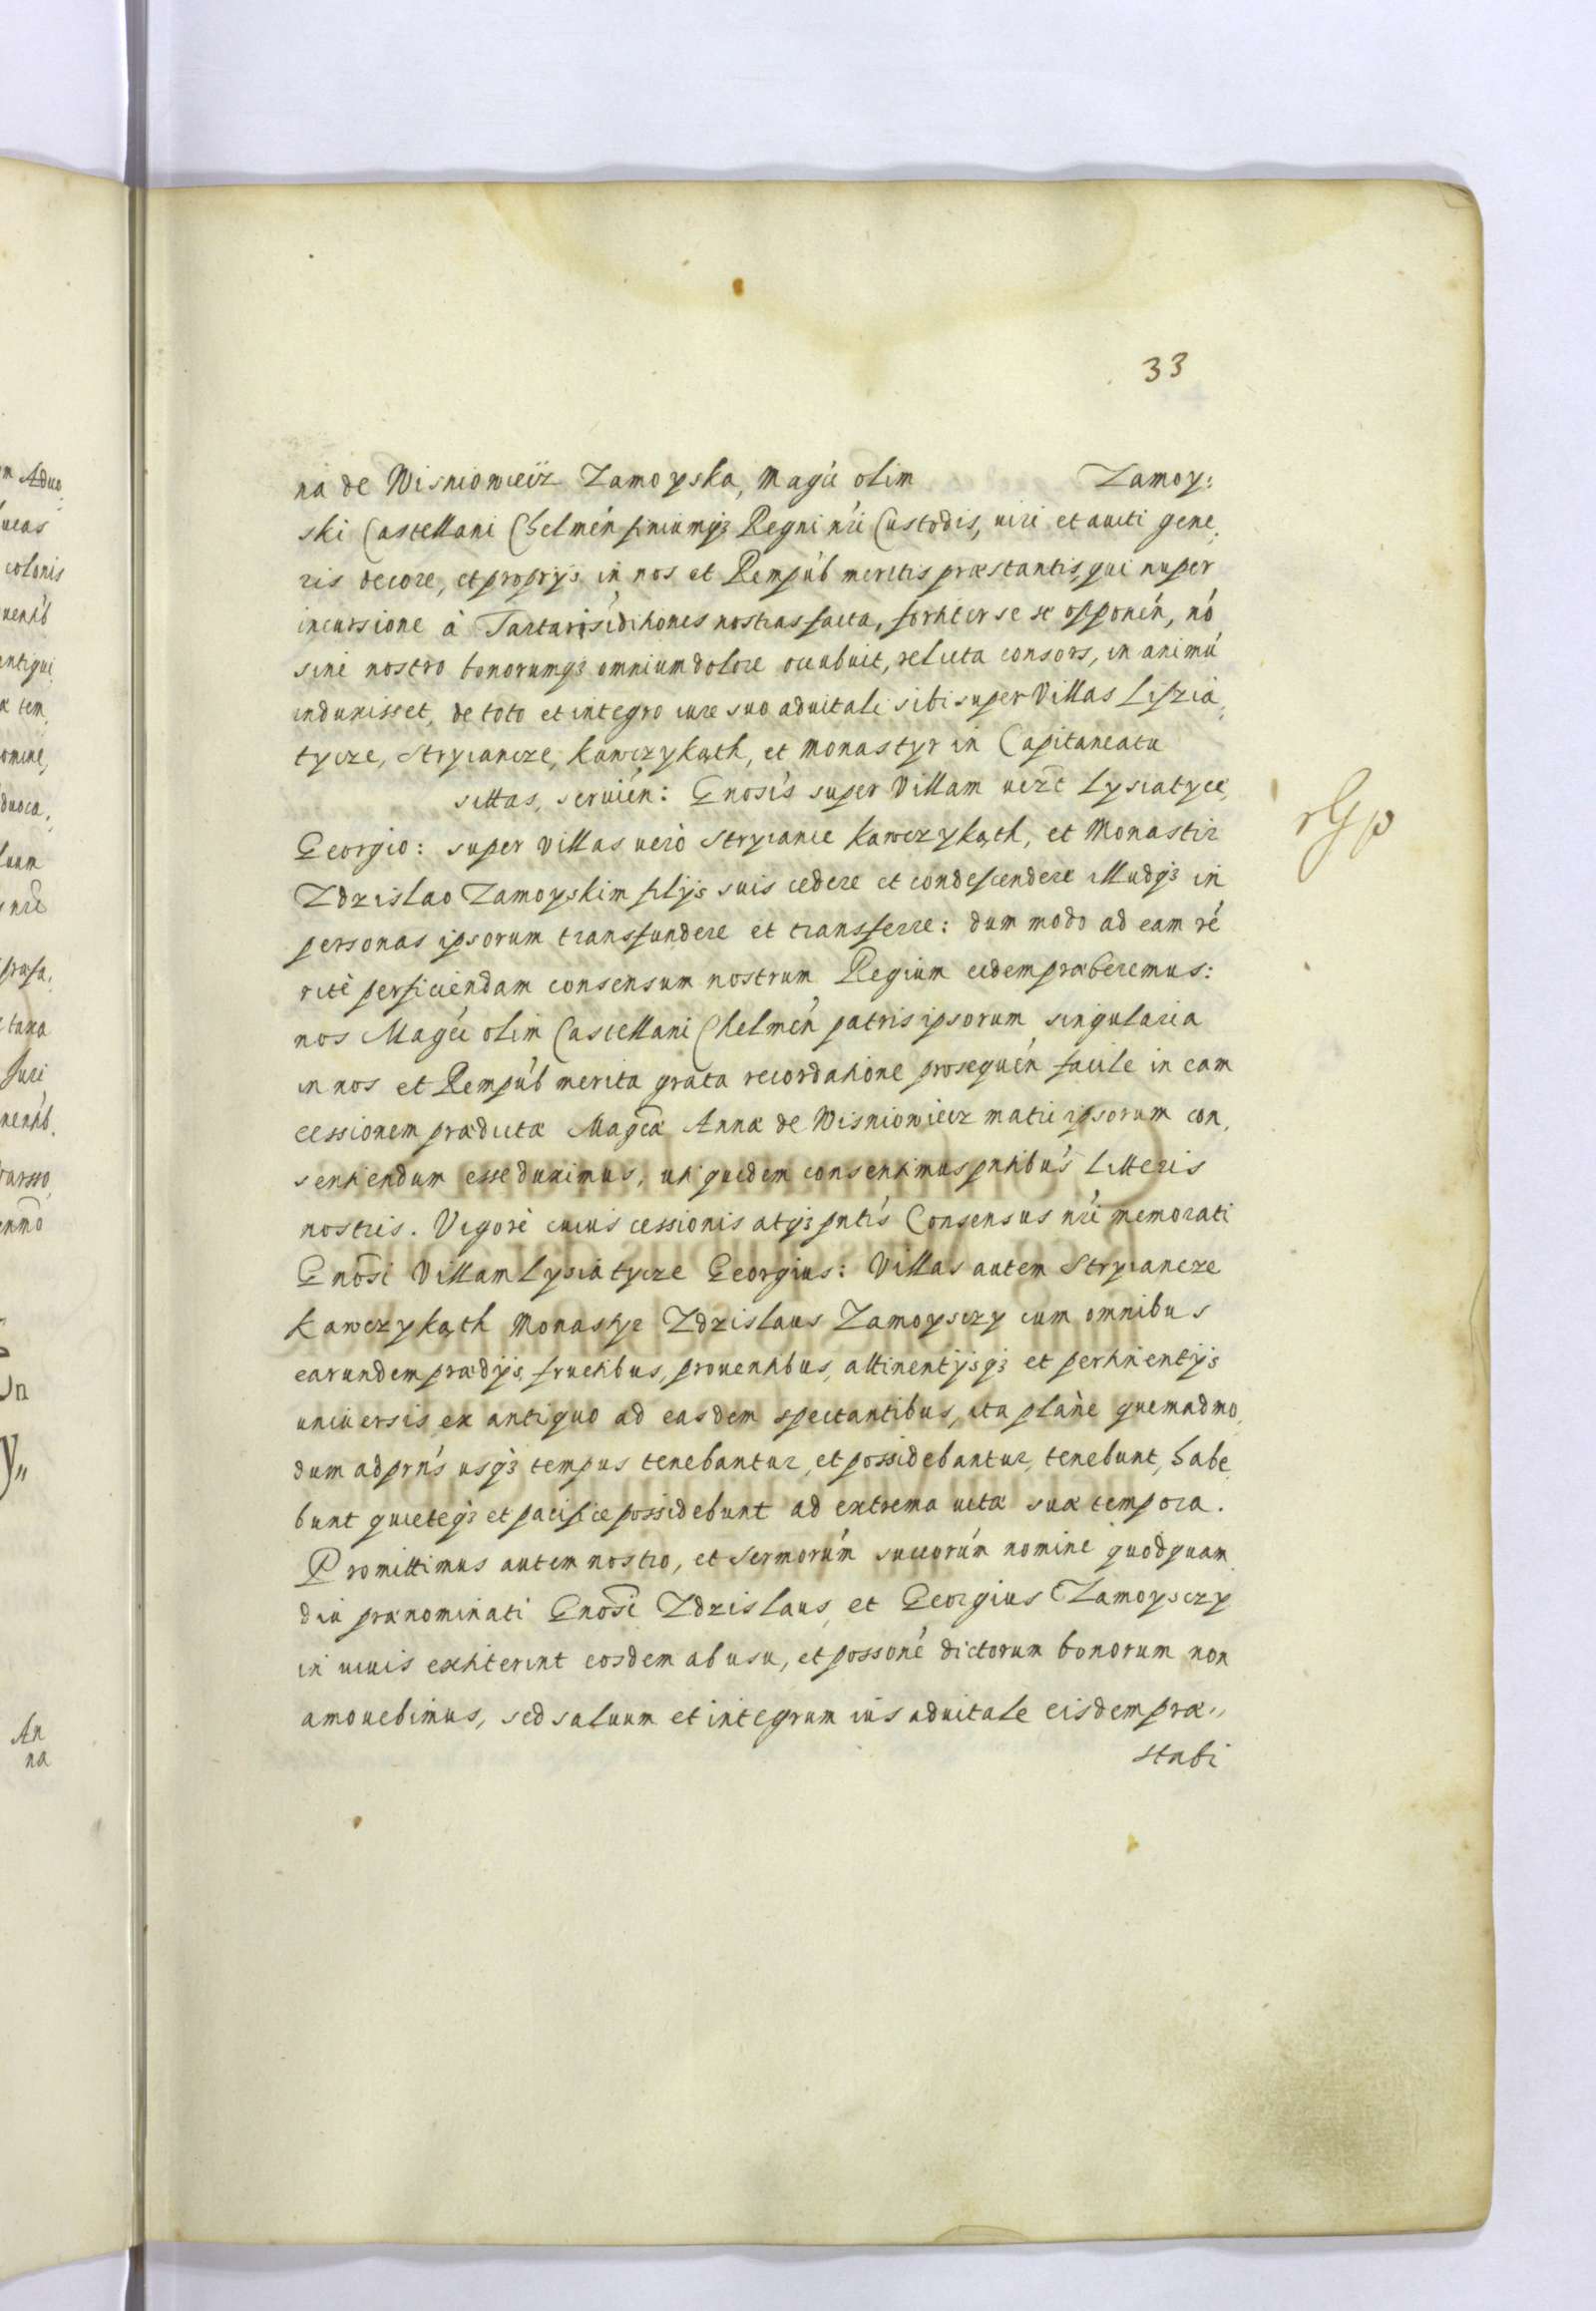 33
na de Wisniowiecz Zamoyska, Magci olim Zamoy:
ski Castellani Chelmen finiumq3 Regni nri Custodis, uiri et auiti gene,
ris decore, et proprijs in nos et Rempub meritis præstantis, qui nuper
incursione à Tartaris i ditiones nostras facta, fortiter se se opponen, nó
sine nostro bonorumq3 omnium dolore occubuit, relicta consors, in animú
induxisset, de toto et integro iure suo aduitali sibi super Villas Liszia,
tycze, Stryiancze, Kawczykąth, et Monastyr in Capitaneatu
sittas, seruien: Gnosis super Villam uert Lysiatyce,
Georgio: super villas uerò Stryiance Kawczykąth, et Monastir
Zdzislao Zamoyskim filijs suis cedere et condescendere illudq3 in
personas ipsorum transfundere et transferre: dum modo ad eam ré
ritè perficiendam consensum nostrum Regium eidem præberemus:
nos Magci olim Castellani Chelmen patris ipsorum singularia
in nos et Rempub merita grata recordatione prosequen facile in eam
cessionem prædictæ Magcæ Annæ de Wisniowiecz matri ipsorum con,
sentiendum esse duximus, uti quidem consentimus pntibus Litteris
nostris. Vigore cuius cessionis atq3 pntis Consensus nri memorati
Gnosi Villam Lysiatycze Georgius: Villas autem Stryiancze
Kawczykąth Monastyr Zdzislaus Zamoysczy cum omnibus
earundem prædijs, fructibus, prouentibus, attinentijsq3 et pertinentijs
uniuersis, ex antiquo ad easdem spectantibus, ita planè quemadmo,
dum ad prns usq3 tempus tenebantur, et possidebantur, tenebunt, habe,
bunt quieteq3 et pacifice possidebunt ad extrema uitæ suæ tempora.
Promittimus autem nostro, et Sermorum succorum nomine quod quam
diu prænominati Gnosi Zdzislaus, et Georgius Zamoysczy
in uiuis extiterint eosdem ab usu, et possone dictorum bonorum non
amouebimus, sed saluum et integrum ius aduitale eisdem præ,,
stabi